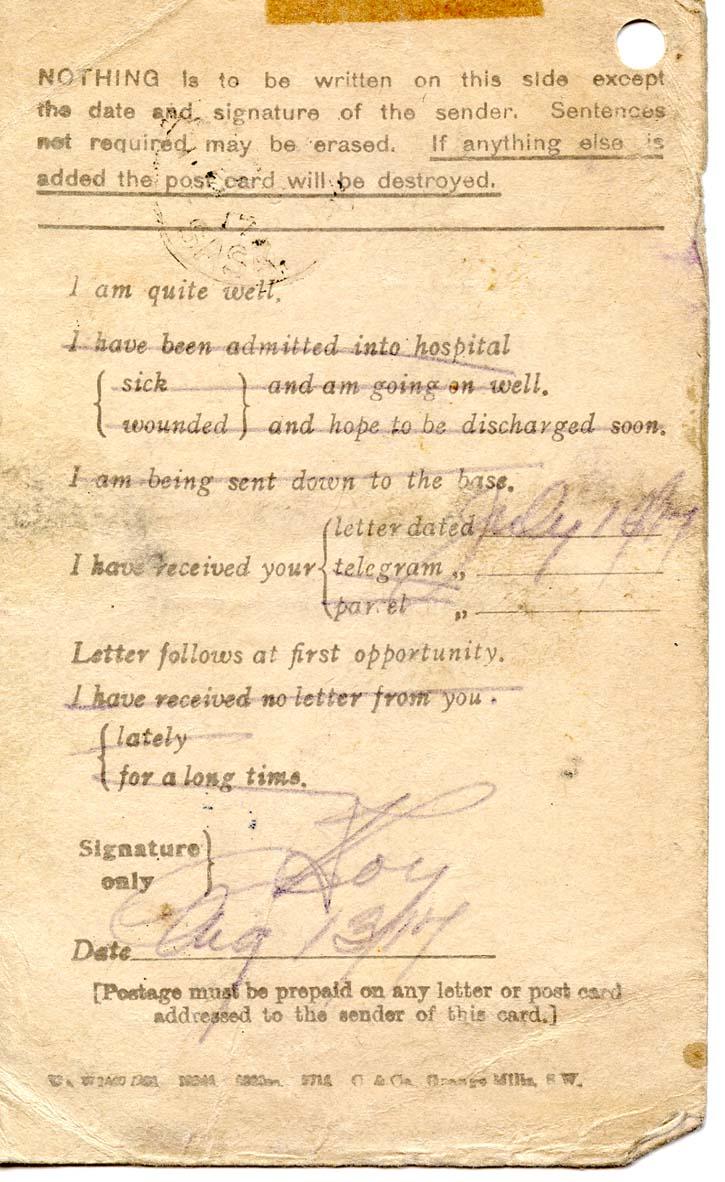 NOTHING is to be written on this side except
the date and signature of the sender. Sentences
not required may be erased. If anything else is
added the post card will be destroyed.
17
SASK
I am quite well.
I have been admitted into hospital
{ sick } and am going on well.
{ wounded } and hope to be discharged soon.
I am being sent down to the base.
I have received your { letter dated July 14/17
telegram ,,
parcel ,,
Letter follows at first opportunity.
I have received no letter from you.
{ lately
for a long time.
Signature only } Roy
Date Aug 13/17
[Postage must be prepaid on any letter or post card
addressed to the sender of this card.]
Grange Mills, S.W.